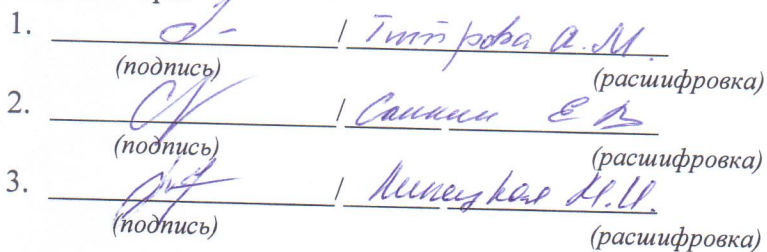 1. / А.М.
(подпись) (расшифровка)
2. / Санкин Е В
(подпись) (расшифровка)
3. / Липецкая Н.И.
(подпись) (расшифровка)